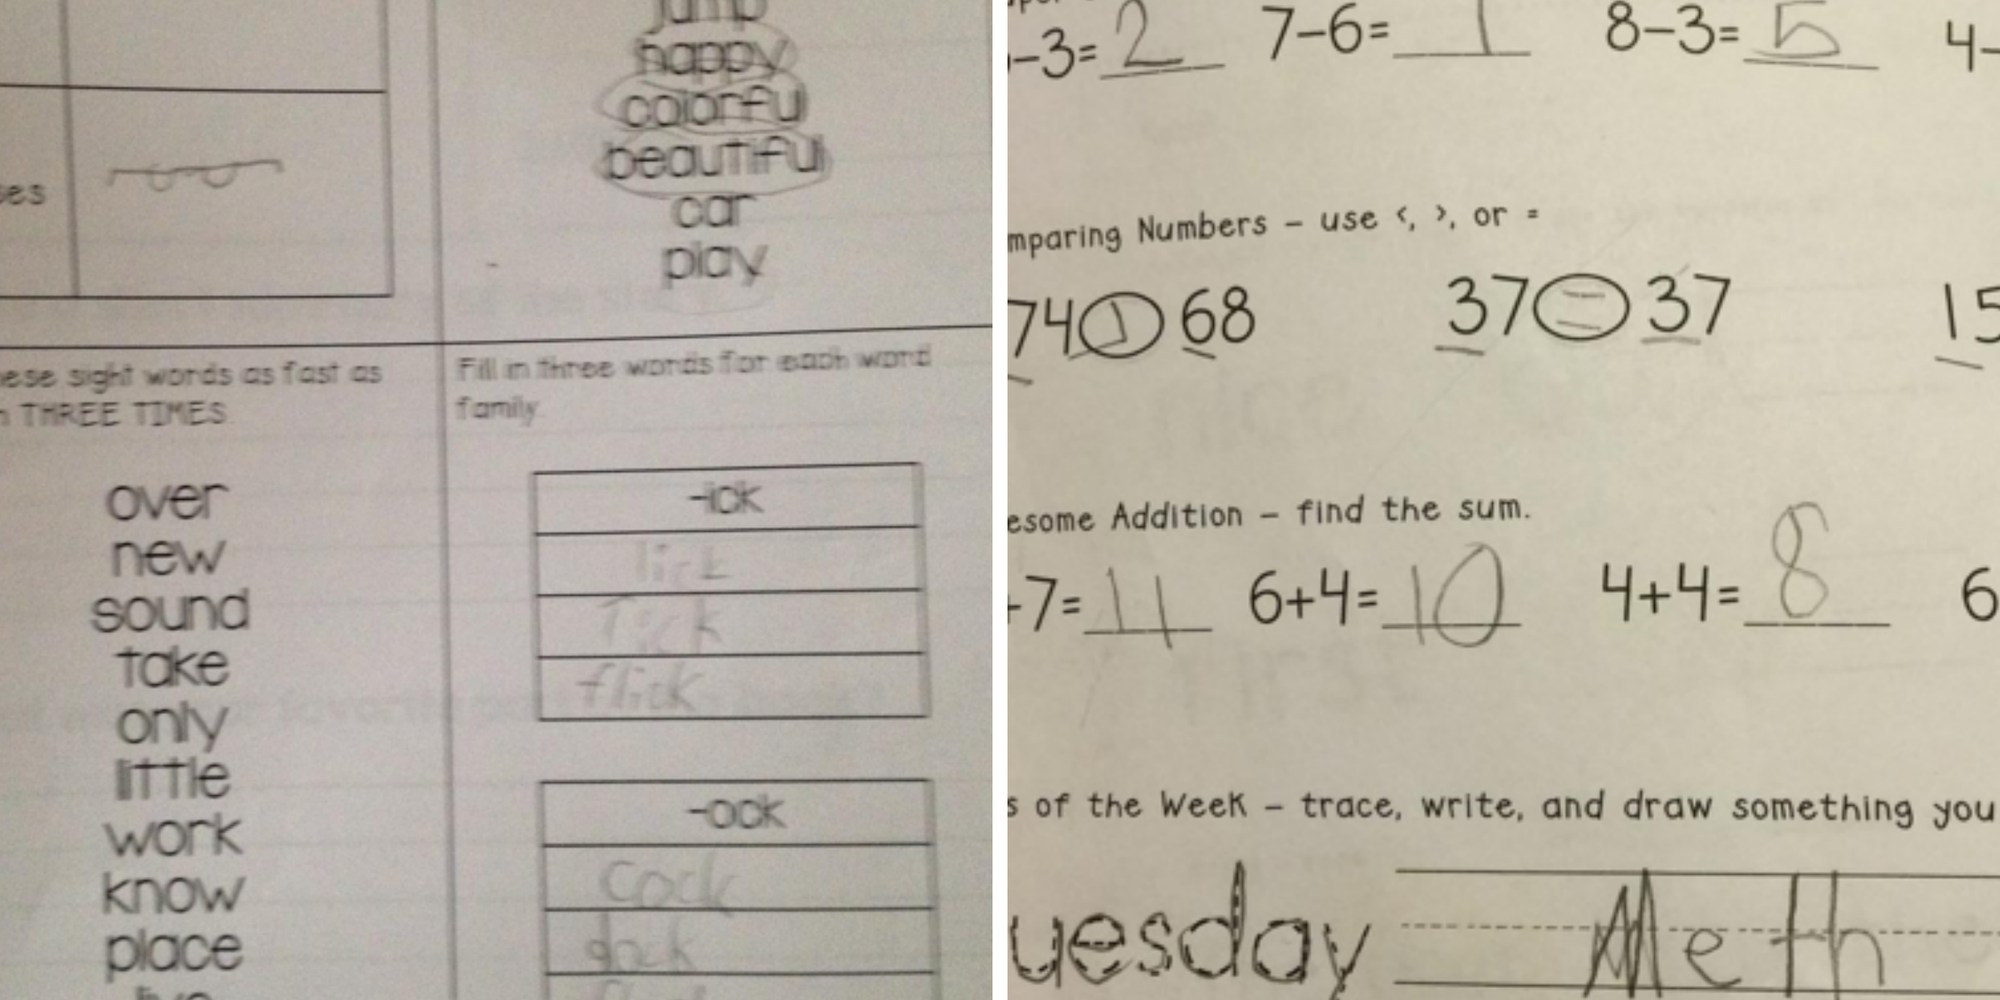 jump
happy
colorful
beautiful
car
play
ese sight words as fast as
THREE TIMES.
over
new
sound
take
only
little
work
know
place
Fill in three words for each word
family.
-ick
lick
Tick
flick
-ock
Cock
dock
-3= 2 7-6= 1 8-3= 5 4-
mparing Numbers - use <, >, or =
74 68 37 = 37 15
esome Addition - find the sum.
+7= 11 6+4= 10 4+4= 8 6
s of the Week - trace, write, and draw something you
uesday Meth